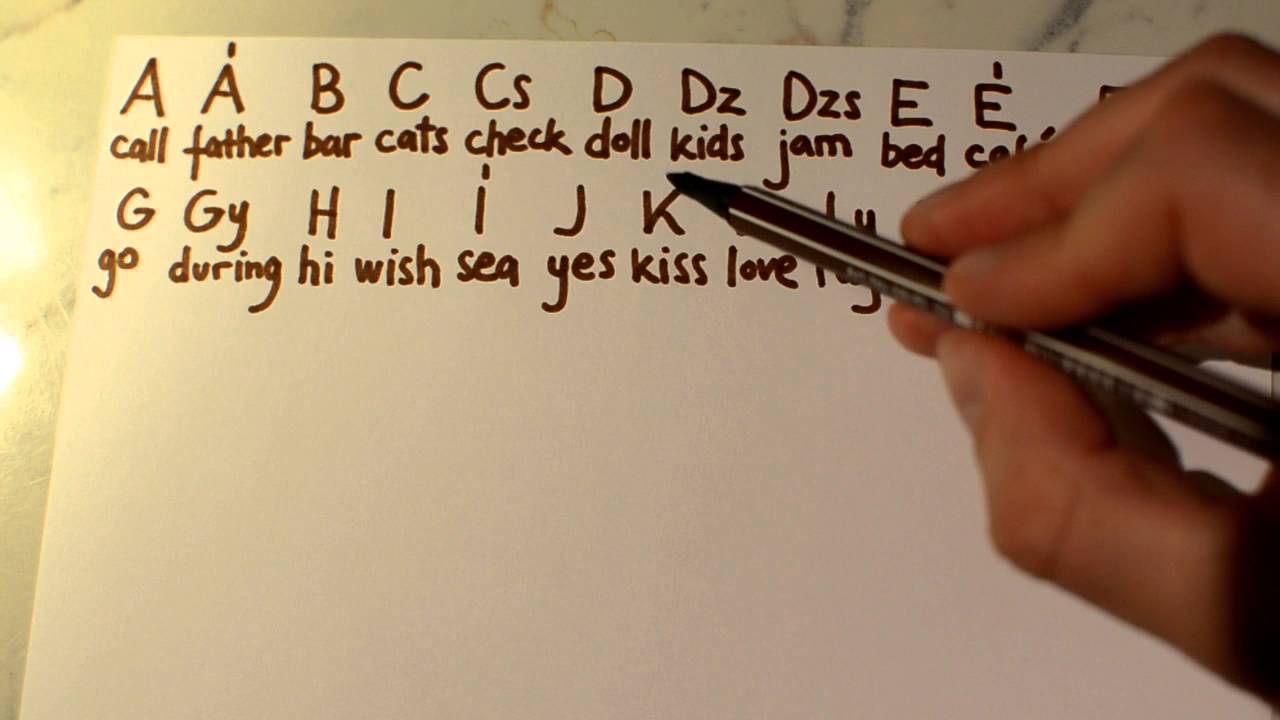 A Á B C Cs D Dz Dzs E É
call father bar cats check doll kids jam bed
G Gy H I Í J K Ly
go during hi wish sea yes kiss love